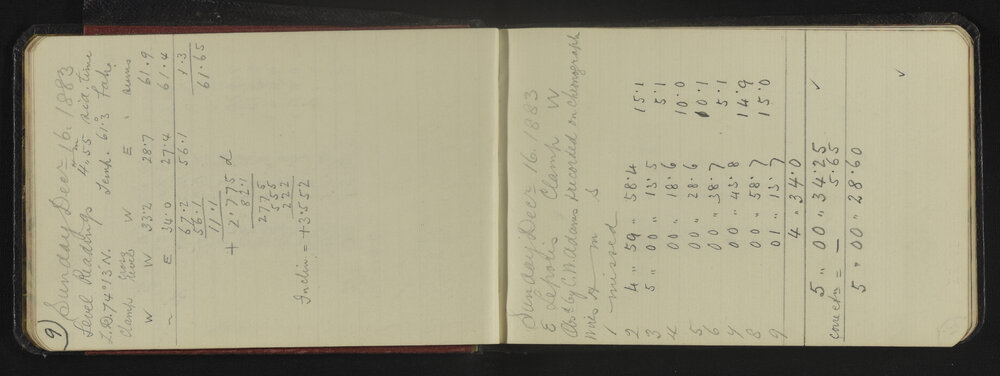 9
Sunday Decr 16. 1883
Level Readings 4h 55m sid. time
Z.D. 74°13'N. Temp. 61.3° Fah.
Clamp Cross levels W E sums
W W 33.2 28.7 61.9
" E 34.0 27.4 61.4
67.2 56.1 1.3
56.1 61.65
11.1
+ 2.775 d
2775
555
222
Inclin = +3.552
Sunday Decr 16. 1883
E Leporis Clamp W
Obsd by C.W. Adams recorded on chronograph
Wires h m s
1 missed
2 4 " 59 " 58.4 15.1
3 5 " 00 " 13.5 5.1
4 00 " 18.6 10.0
5 00 " 28.6 10.1
6 00 " 38.7 5.1
7 00 " 43.8 14.9
8 00 " 58.7 15.0
9 01 " 13.7
4 " 34.0
5 " 00 " 34.25 ✓
correctn = - 5.65
5 " 00 " 28.60 ✓